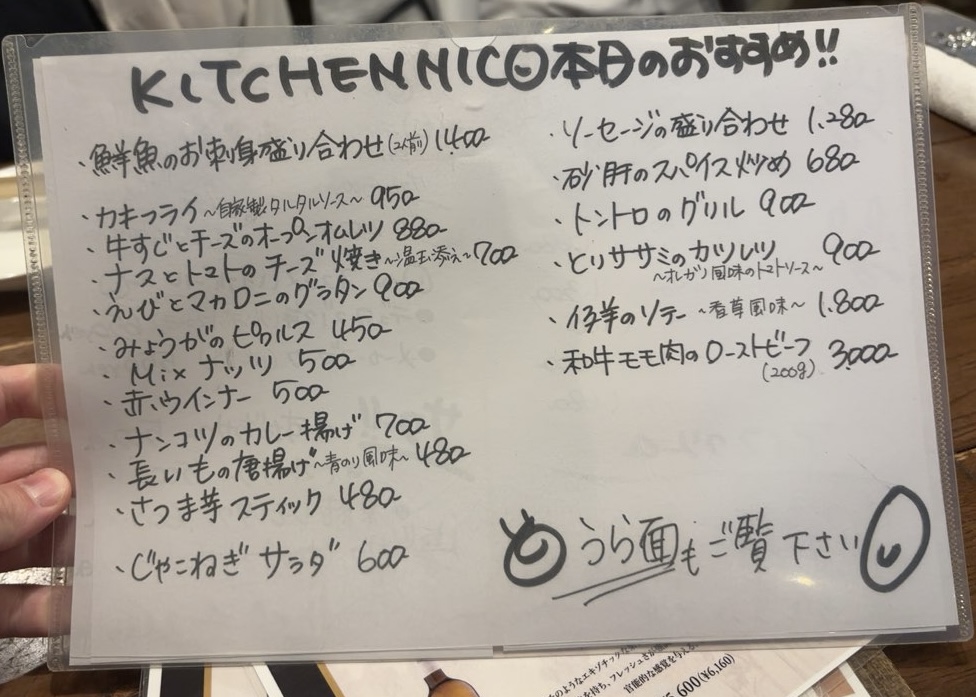 KITCHEN NICO 本日のおすすめ!!
・鮮魚のお刺身盛り合わせ(2人前) 1,400
・カキフライ~自家製タルタルソース~ 950
・牛すじとチーズのオープンオムレツ 880
・ナスとトマトのチーズ焼き~温玉添え~ 700
・えびとマカロニのグラタン 900
・みょうがのピクルス 450
・Mix ナッツ 500
・赤ウインナー 500
・ナンコツのカレー揚げ 700
・長いもの唐揚げ~青のり風味~ 480
・さつま芋スティック 480
・じゃこねぎサラダ 600
・ソーセージの盛り合わせ 1,280
・砂肝のスパイス炒め 680
・トントロのグリル 900
・とりササミのカツレツ 900
~オレガノ風味のトマトソース~
・仔羊のソテー ~香草風味~ 1,800
・和牛モモ肉のローストビーフ 3,000
(200g)
うら面もご覧下さい
のようなエキゾチックな
を持ち、フレッシュさが
官能的な感覚を与える
5,600(¥6,160)